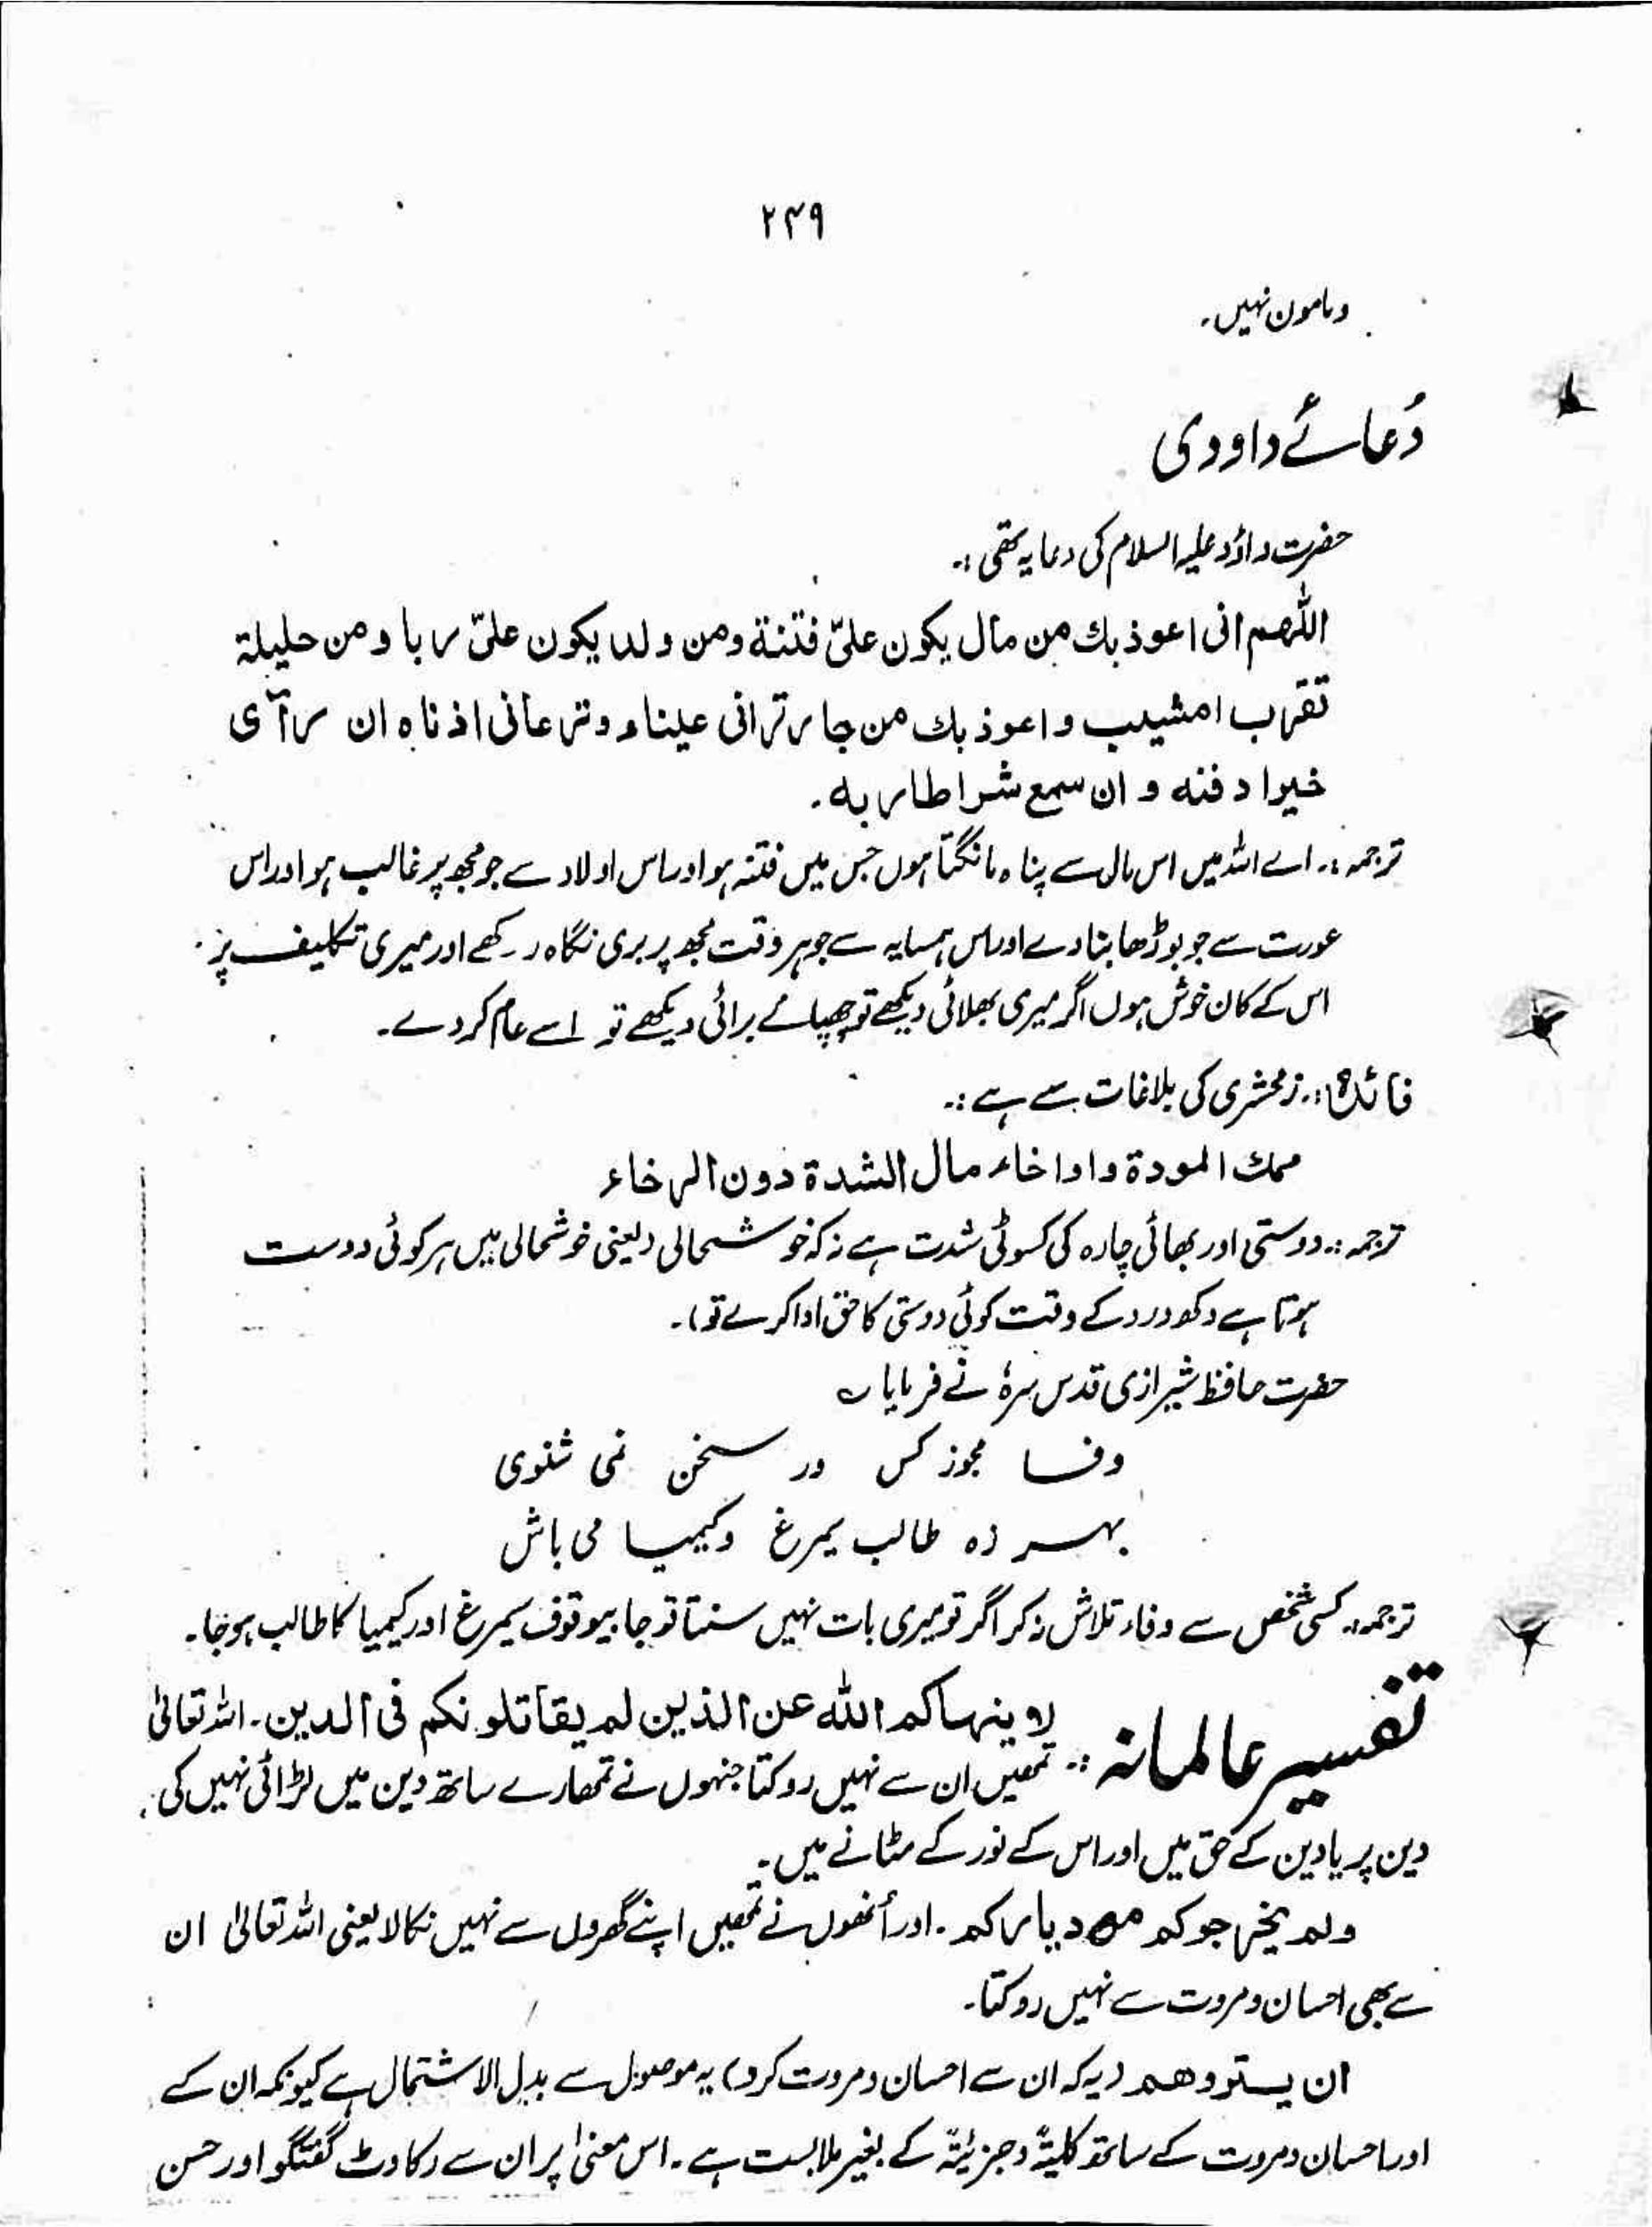 ۲۴۹
ومامون نہیں۔
دُعائے داودی
حضرت داؤد علیہ السلام کی دعا یہ تھی :۔
اللٰھم انی اعوذ بك من مال یکون علیّ فتنة ومن ولد یکون علیّ ربا و من حلیلة
تقرب المشیب و اعوذ بك من جار ترانی عیناه و ترعانی اذناه ان رآی
خیرا دفنه و ان سمع شرا طار به۔
ترجمہ :۔ اے اللہ میں اس مال سے پناہ مانگتا ہوں جس میں فتنہ ہو اور اس اولاد سے جو مجھ پر غالب ہو اور اس
عورت سے جو بوڑھا بنا دے اور اس ہمسایہ سے جو ہر وقت مجھ پر بری نگاہ رکھے اور میری تکلیف پر
اس کے کان خوش ہوں اگر میری بھلائی دیکھے تو چھپائے برائی دیکھے تو اسے عام کر دے۔
فائدہ :۔ زمخشری کی بلاغات سے ہے :۔
محك المودة و اوا خاء مال الشدة دون الرخاء
ترجمہ :۔ دوستی اور بھائی چارہ کی کسوٹی شدت ہے نہ کہ خوشحالی (یعنی خوشحالی میں ہر کوئی دوست
ہوتا ہے دکھ درد کے وقت کوئی دوستی کا حق ادا کرے تو)۔
حضرت حافظ شیرازی قدس سرہٗ نے فرمایا ؎
وفا مجوز کس ور سخن نمی شنوی
بہرزہ طالب سیمرغ و کیمیا می باش
ترجمہ :۔ کسی شخص سے وفاء تلاش نہ کر اگر تو میری بات نہیں سنتا تو جا بیوقوف سیمرغ اور کیمیا کا طالب ہو جا۔
تفسیر عالمانہ :۔ لا ینهاکم اللہ عن الذین لم یقاتلونکم فی الدین۔ اللہ تعالیٰ
تمھیں ان سے نہیں روکتا جنہوں نے تمھارے ساتھ دین میں لڑائی نہیں کی،
دین پر یا دین کے حق میں اور اس کے نور کے مٹانے میں۔
ولم یخرجوکم من دیارکم۔ اور اُنھوں نے تمھیں اپنے گھروں سے نہیں نکالا یعنی اللہ تعالیٰ ان
سے بھی احسان و مروت سے نہیں روکتا۔
ان یستروھم (یہ کہ ان سے احسان و مروت کرو) یہ موصول سے بدل الاشتمال ہے کیونکہ ان کے
اور احسان و مروت کے ساتھ کلیۃً و جزئیۃً کے بغیر ملابست ہے۔ اس معنیٰ پر ان سے رکاوٹ گفتگو اور حسن